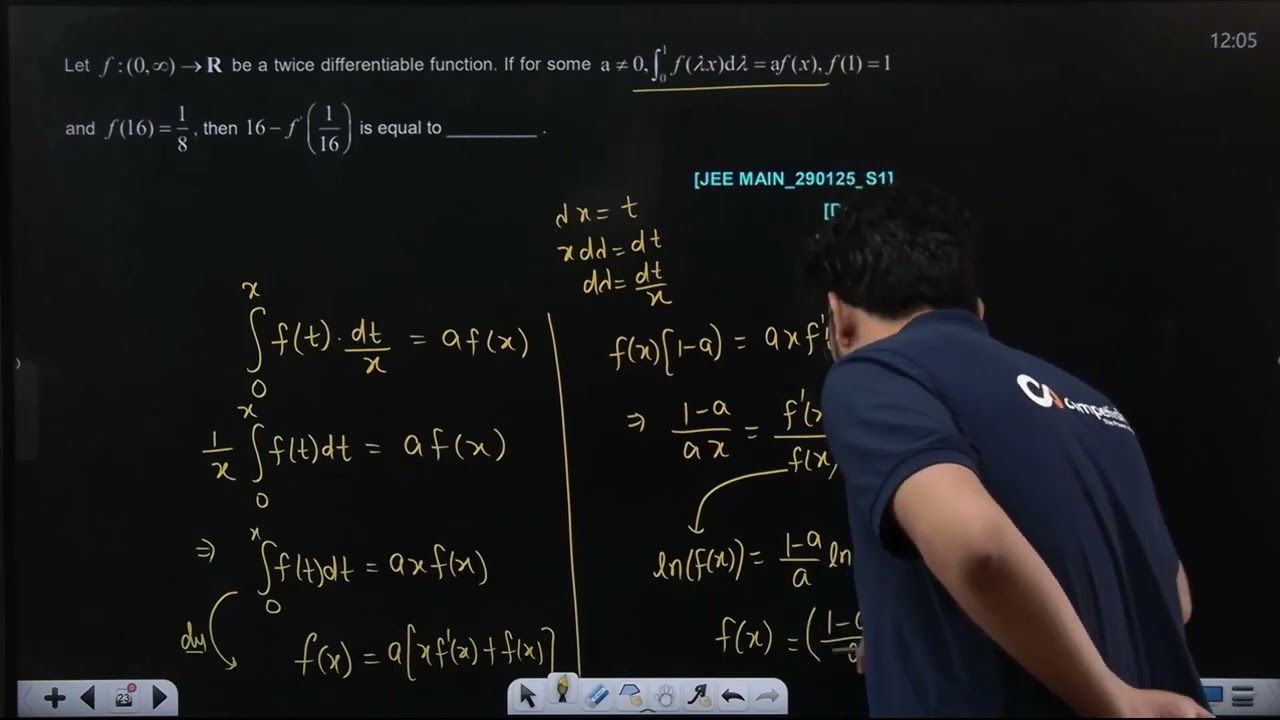 12:05
Let f : (0,∞) → R be a twice differentiable function. If for some a ≠ 0, ∫₀¹ f(λx)dλ = af(x), f(1) = 1
and f(16) = 1/8, then 16 − f′(1/16) is equal to ________ .
[JEE MAIN_290125_S1]
λx = t
xdλ = dt
dλ = dt/x
∫₀ˣ f(t)·dt/x = af(x)
1/x ∫₀ˣ f(t)dt = af(x)
⇒ ∫₀ˣ f(t)dt = axf(x)
f(x) = a[xf'(x) + f(x)]
f(x)[1-a) = axf'
⇒ 1-a/ax = f'(x/f(x)
ln(f(x)) = 1-a/a ln
f(x) = (1-
23